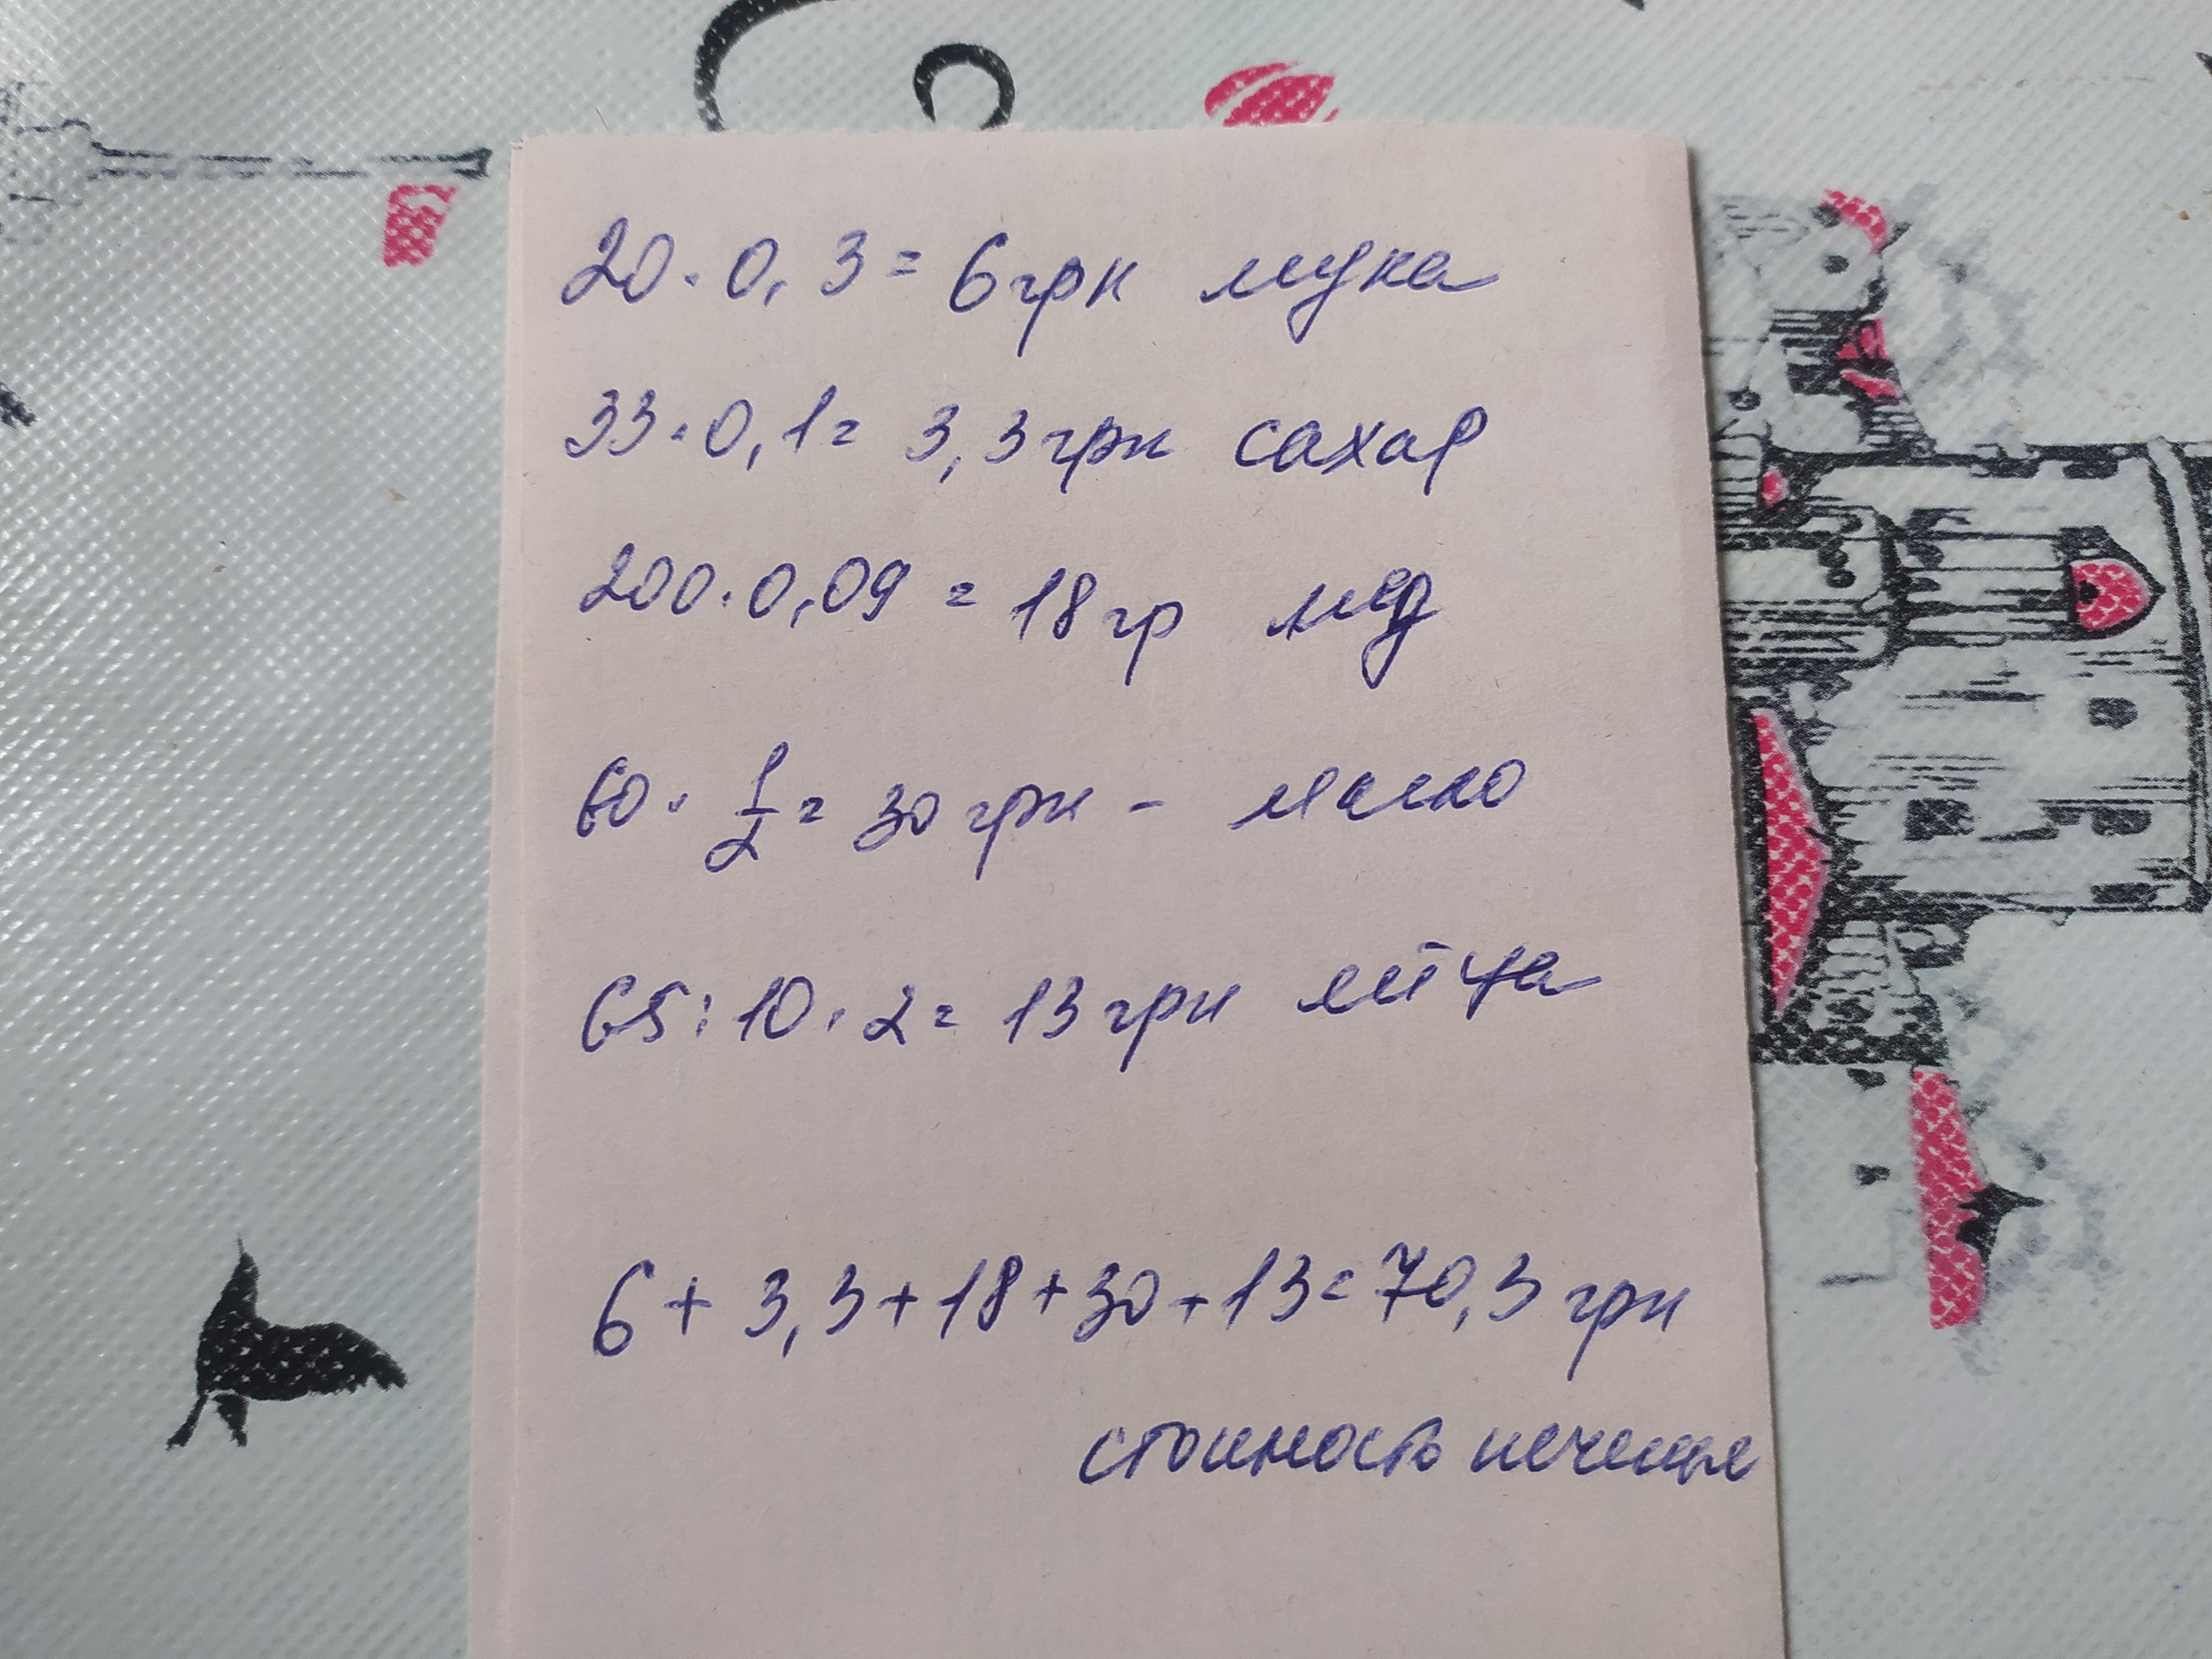 20·0,3=6грн мука
33·0,1=3,3грн сахар
200·0,09=18гр мёд
60·1/2=30грн - масло
65:10·2=13грн яйца
6+3,3+18+30+13=70,3грн
стоимость печенье